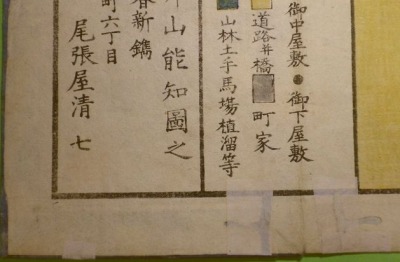 御中屋敷●御下屋敷
道路并橋 町家
山林土手馬場植溜等
山能知圖之
春新鐫
町六丁目
尾張屋清七